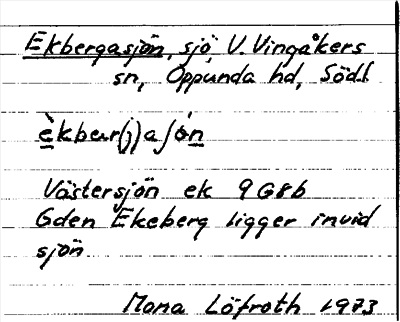 Ekbergasjön, sjö, V. Vingåkers
sn, Oppunda hd, Södl
èkbær(j)aʃón
Västersjön ek 9G8b
Gden Ekeberg ligger invid
sjön
Mona Löfroth 1973